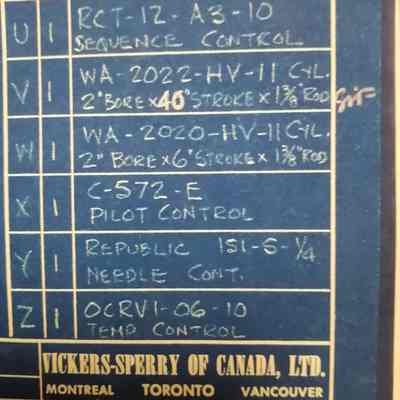 U 1 RCT-12-A3-10
SEQUENCE CONTROL
V 1 WA-2022-HV-11 CYL.
2" BORE x 40" STROKE x 1 3/8" ROD
W 1 WA-2020-HV-11 CYL.
2" BORE x 6" STROKE x 1 3/8" ROD
X 1 C-572-E
PILOT CONTROL
Y 1 REPUBLIC 151-S-1/4
NEEDLE CONT.
Z 1 OCRV1-06-10
TEMP CONTROL
VICKERS-SPERRY OF CANADA, LTD.
MONTREAL TORONTO VANCOUVER